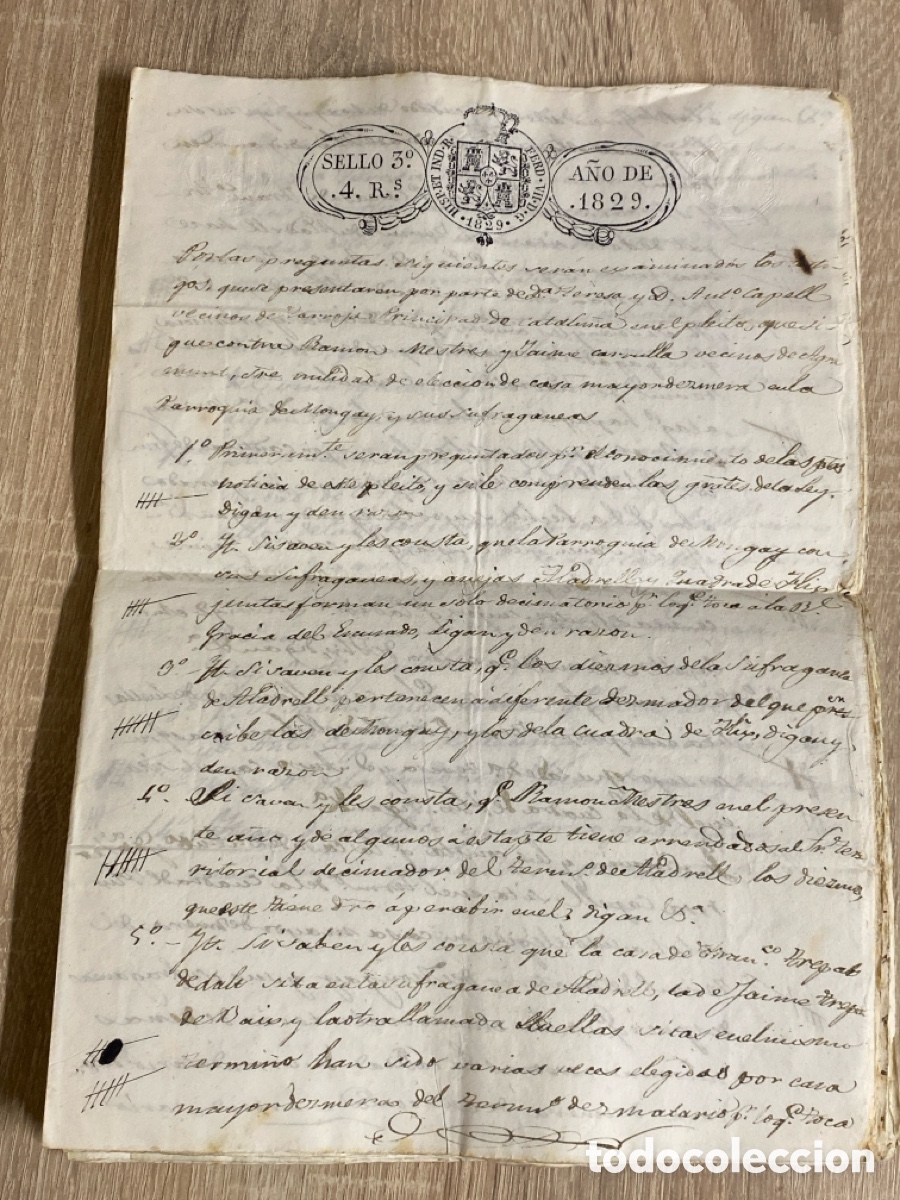 SELLO 3º
4. R.s
HISP. ET IND. R.
FERD. VII. D. G.
1829
AÑO DE
1829.
Por las preguntas siguientes seràn examinados los testi-
gos, que se presentaren, por parte de d.ª Teresa y D. Antº Capell
vecinos de Principad de Cataluña en el pleito, que si-
gue contra Ramon Mestres y Jaime Carnulla vecinos de Agra-
munt, sre nulidad de eleccion de casa mayordezmera en la
Parroquia de Mongay, y sus sufraganeas
1º Primeram.te seran preguntados p.r el conocimiento de las ptes
noticia de este pleito, y si le comprenden las grāles de la Ley.
Digan y den razon
2º It. Si saven y les consta, que la Parroquia de Mongay con
sus sufraganeas, y anejas Aladrell y Cuadra de Flix,
juntas forman un solo decimatorio p.r lo q.e toca á la Rl.
Gracia del Escusado, Digan y den razon.
3º It. Si saven y les consta, q.e los diezmos de la sufraganea
de Aladrell, pertenecen á diferente dezmador del que
cibe las de Mongay, y los de la cuadra de Flix, digan y
den razon
4º. Si saven y les consta, q.e Ramon Mestres en el presen-
te año, y de algunos á esta pte tiene arrendados al Sr. ter-
ritorial decimador del term.º de Aladrell los diezmos,
que este tiene dro á percibir en el, digan &.ª
5º. It. Si saben y les consta que la casa de Fran.co Trepat
de dalt sita en la sufraganea de Aladrell, la de Jaime Trepa
de Baix, y la otra llamada Lluellas sitas en el mismo
termino han sido varias veces elegidas por casa
mayordezmeras del term.º dezmatario p.r lo q.e toca
todocoleccion.net